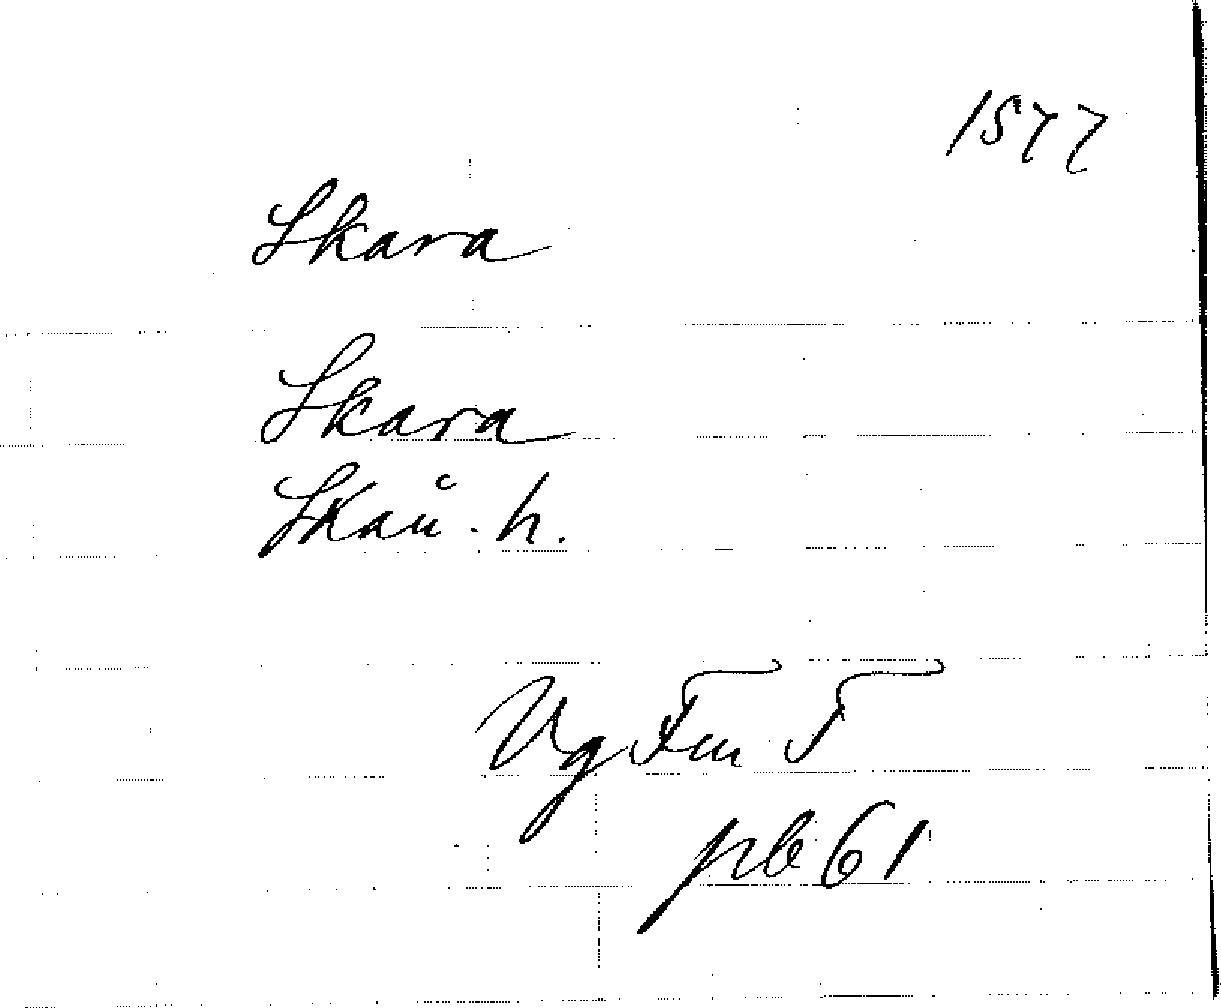 1577
Skara
Skara
Skån. h.
Vg Fm T
pb 61